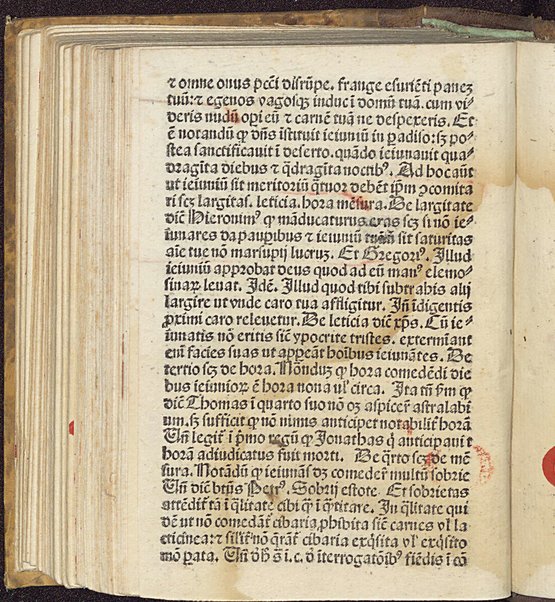 ⁊ omne onus pct̄i disrūpe. frange esuriēti panez
tuū: ⁊ egenos vagosqꝫ induc ī domū tuā. cum vi-
deris nudū opi eū ⁊ carnē tuā ne despexeris. Et
ē notandū ꝙ dn̄s īstituit ieiuniū in ꝑadiso: sꝫ po-
stea sanctificauit ī deserto. quādo ieiunauit qua-
dragīta diebus ⁊ q̄dragīta noctibꝰ. Ad hoc aūt
ut ieiuniū sit meritoriū q̄tuor debēt ip̄m ↄcomita
ri scꝫ largitas. leticia. hora mēsura. De largitate
dic̄ Hieronimꝰ ꝙ māducaturus eras scꝫ si nō ie-
iunares da pauꝑibus ⁊ ieiuniū tuū sit saturitas
aīe tue nō marsupij lucruꝫ. Et Gregoriꝰ. Illud
ieiuniū approbat deus quod ad eū manꝰ elemo-
sinaꝝ leuat. Idē. Illud quod tibi subtrabis alij
largire ut unde caro tua affligitur. In̄ īdigentis
ꝓximi caro releuetur. De leticia dic̄ xp̄s. Cū ie-
iunatis nō eritis sic̄ ypocrite tristes. exterminant
enī facies suas ut appeāt hoībus ieiunātes. De
tertio scꝫ de hora. Nōnduꝫ ꝙ hora comedēdi die
bus ieiunioꝝ ē hora nona ul̓ circa. Ita tn̄ ꝑm ꝙ
dic̄ Thomas ī quarto suo nō oꝫ aspicer̄ astralabi
um. sꝫ sufficit ꝙ nō nimis anticipet notabilit̓ horā
Un̄ legit̓ ī pmo regū ꝙ Jonathas q̄ anticipauit
horā adiudicatus fuit morti. De q̄rto scꝫ de mē
sura. Notādū ꝙ ieiunās dꝫ comeder̄ multū sobrie
Un̄ dic̄ btūs Petrꝰ. Sobrij estote. Et sobrietas
attēdit̓ tā ī q̄litate cibi ꝙ ī q̄titate. In q̄litate qui
dē ut nō comedāt̓ cibaria ꝓhibita sic̄ carnes ul̓ la
cticinea: ⁊ silit̓ nō q̄rāt̓ cibaria exq̄sita ul̓ exq̄sito
mō ꝑata. Un̄ dr̄ s̄ i. c. ō īterrogatōībꝰ fiēdis ī cō